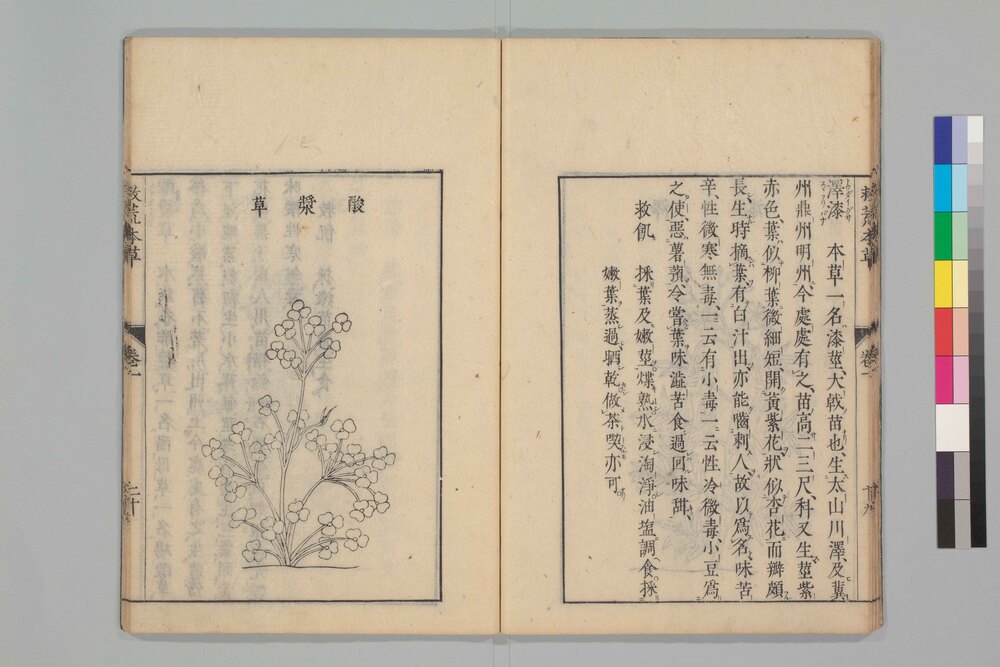 救荒本草
卷一
澤漆 本草一名漆莖、大戟苗也、生太山川澤、及冀
州鼎州明州、今處處有之、苗高二三尺、科叉生莖紫
赤色、葉似柳葉微細短、開黃紫花、狀似杏花而瓣頗
長、生時摘葉有白汁出、亦能囓刺人、故以爲名、味苦
辛、性微寒無毒、一云有小毒一云性冷微毒、小豆爲
之使、惡薯蕷、今嘗葉味澁苦食過回味甜、
救飢 採葉及嫩莖煠熟水浸淘淨油塩調食採
嫩葉蒸過晒乾做茶喫亦可
酸漿草
救荒本草
卷一
三十